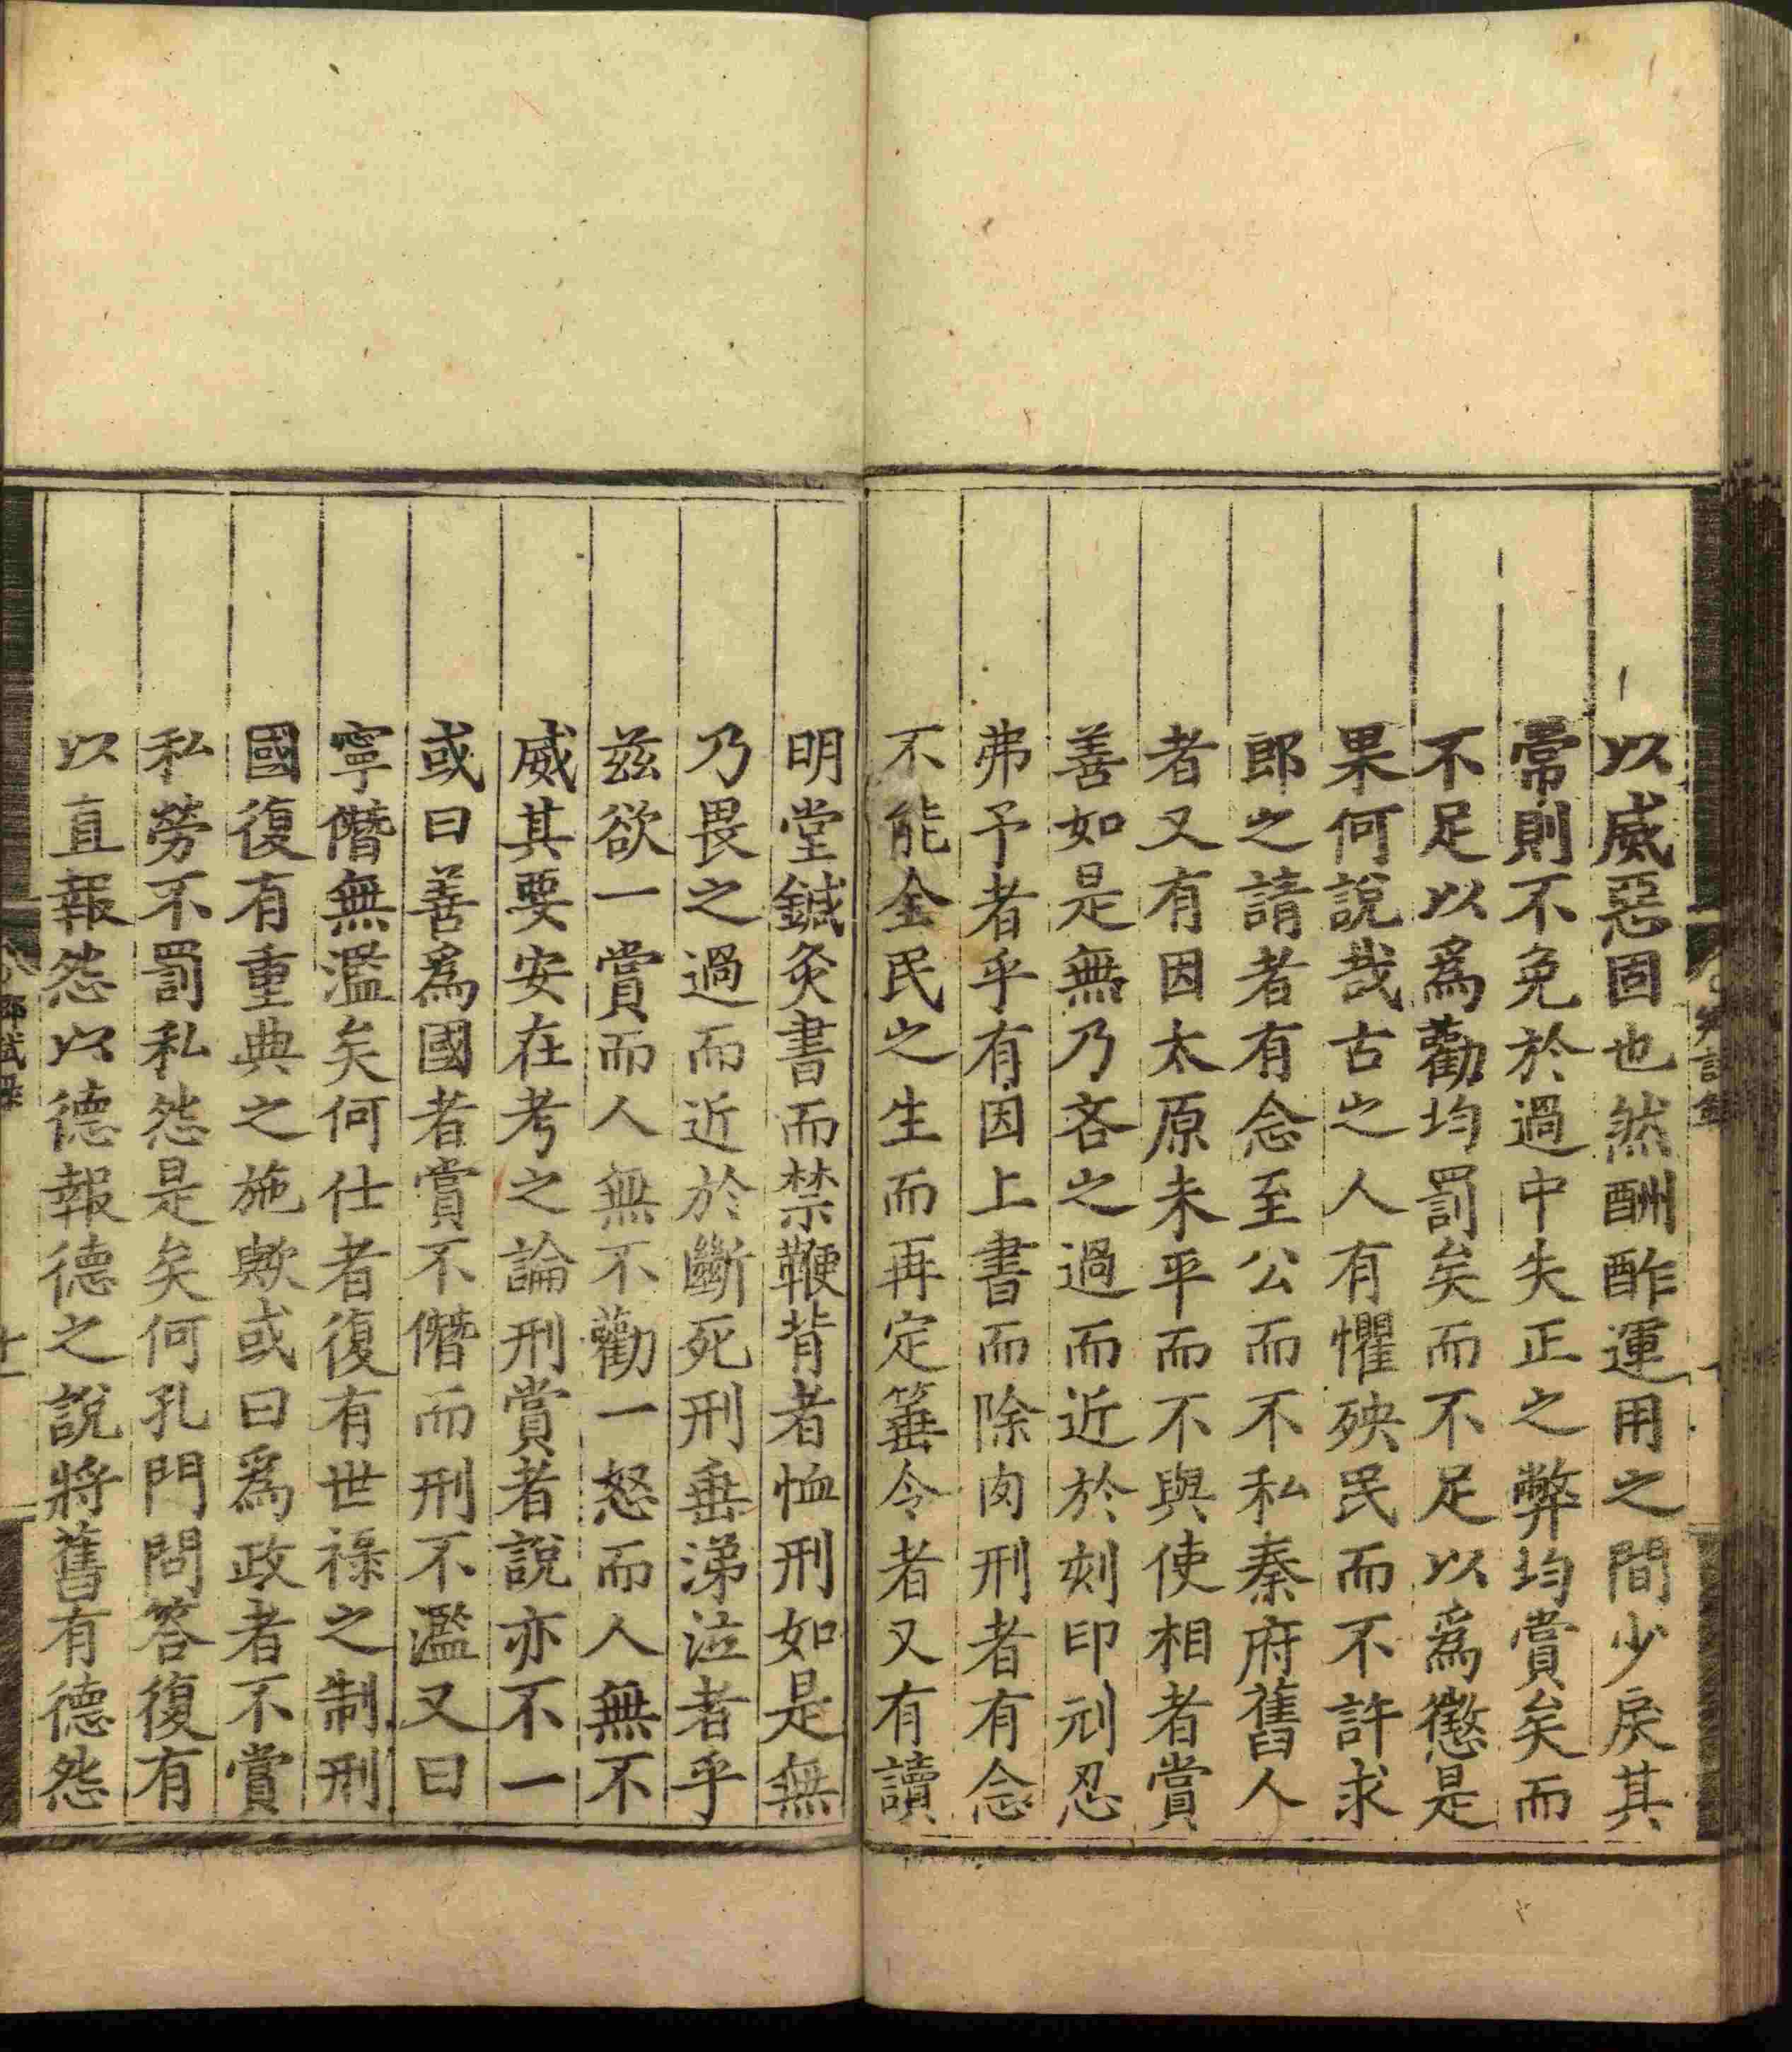 以威惡固也然酬酢運用之間少戾其
常則不免於過中失正之弊均賞矣而
不足以爲勸均罰矣而不足以爲懲是
果何說哉古之人有懼殃民而不許求
郎之請者有念至公而不私秦府舊人
者又有因太原未平而不與使相者賞
善如是無乃吝之過而近於刻印刓忍
弗予者乎有因上書而除肉刑者有念
不能全民之生而再定箠令者又有讀
明堂鍼灸書而禁鞭背者恤刑如是無
乃畏之過而近於斷死刑垂涕泣者乎
兹欲一賞而人無不勸一怒而人無不
威其要安在考之論刑賞者說亦不一
或曰善爲國者賞不僭而刑不濫又曰
寧僭無濫矣何仕者復有世祿之制刑
國復有重典之施歟或曰爲政者不賞
私勞不罰私怨是矣何孔門問答復有
以直報怨以德報德之說將舊有德怨